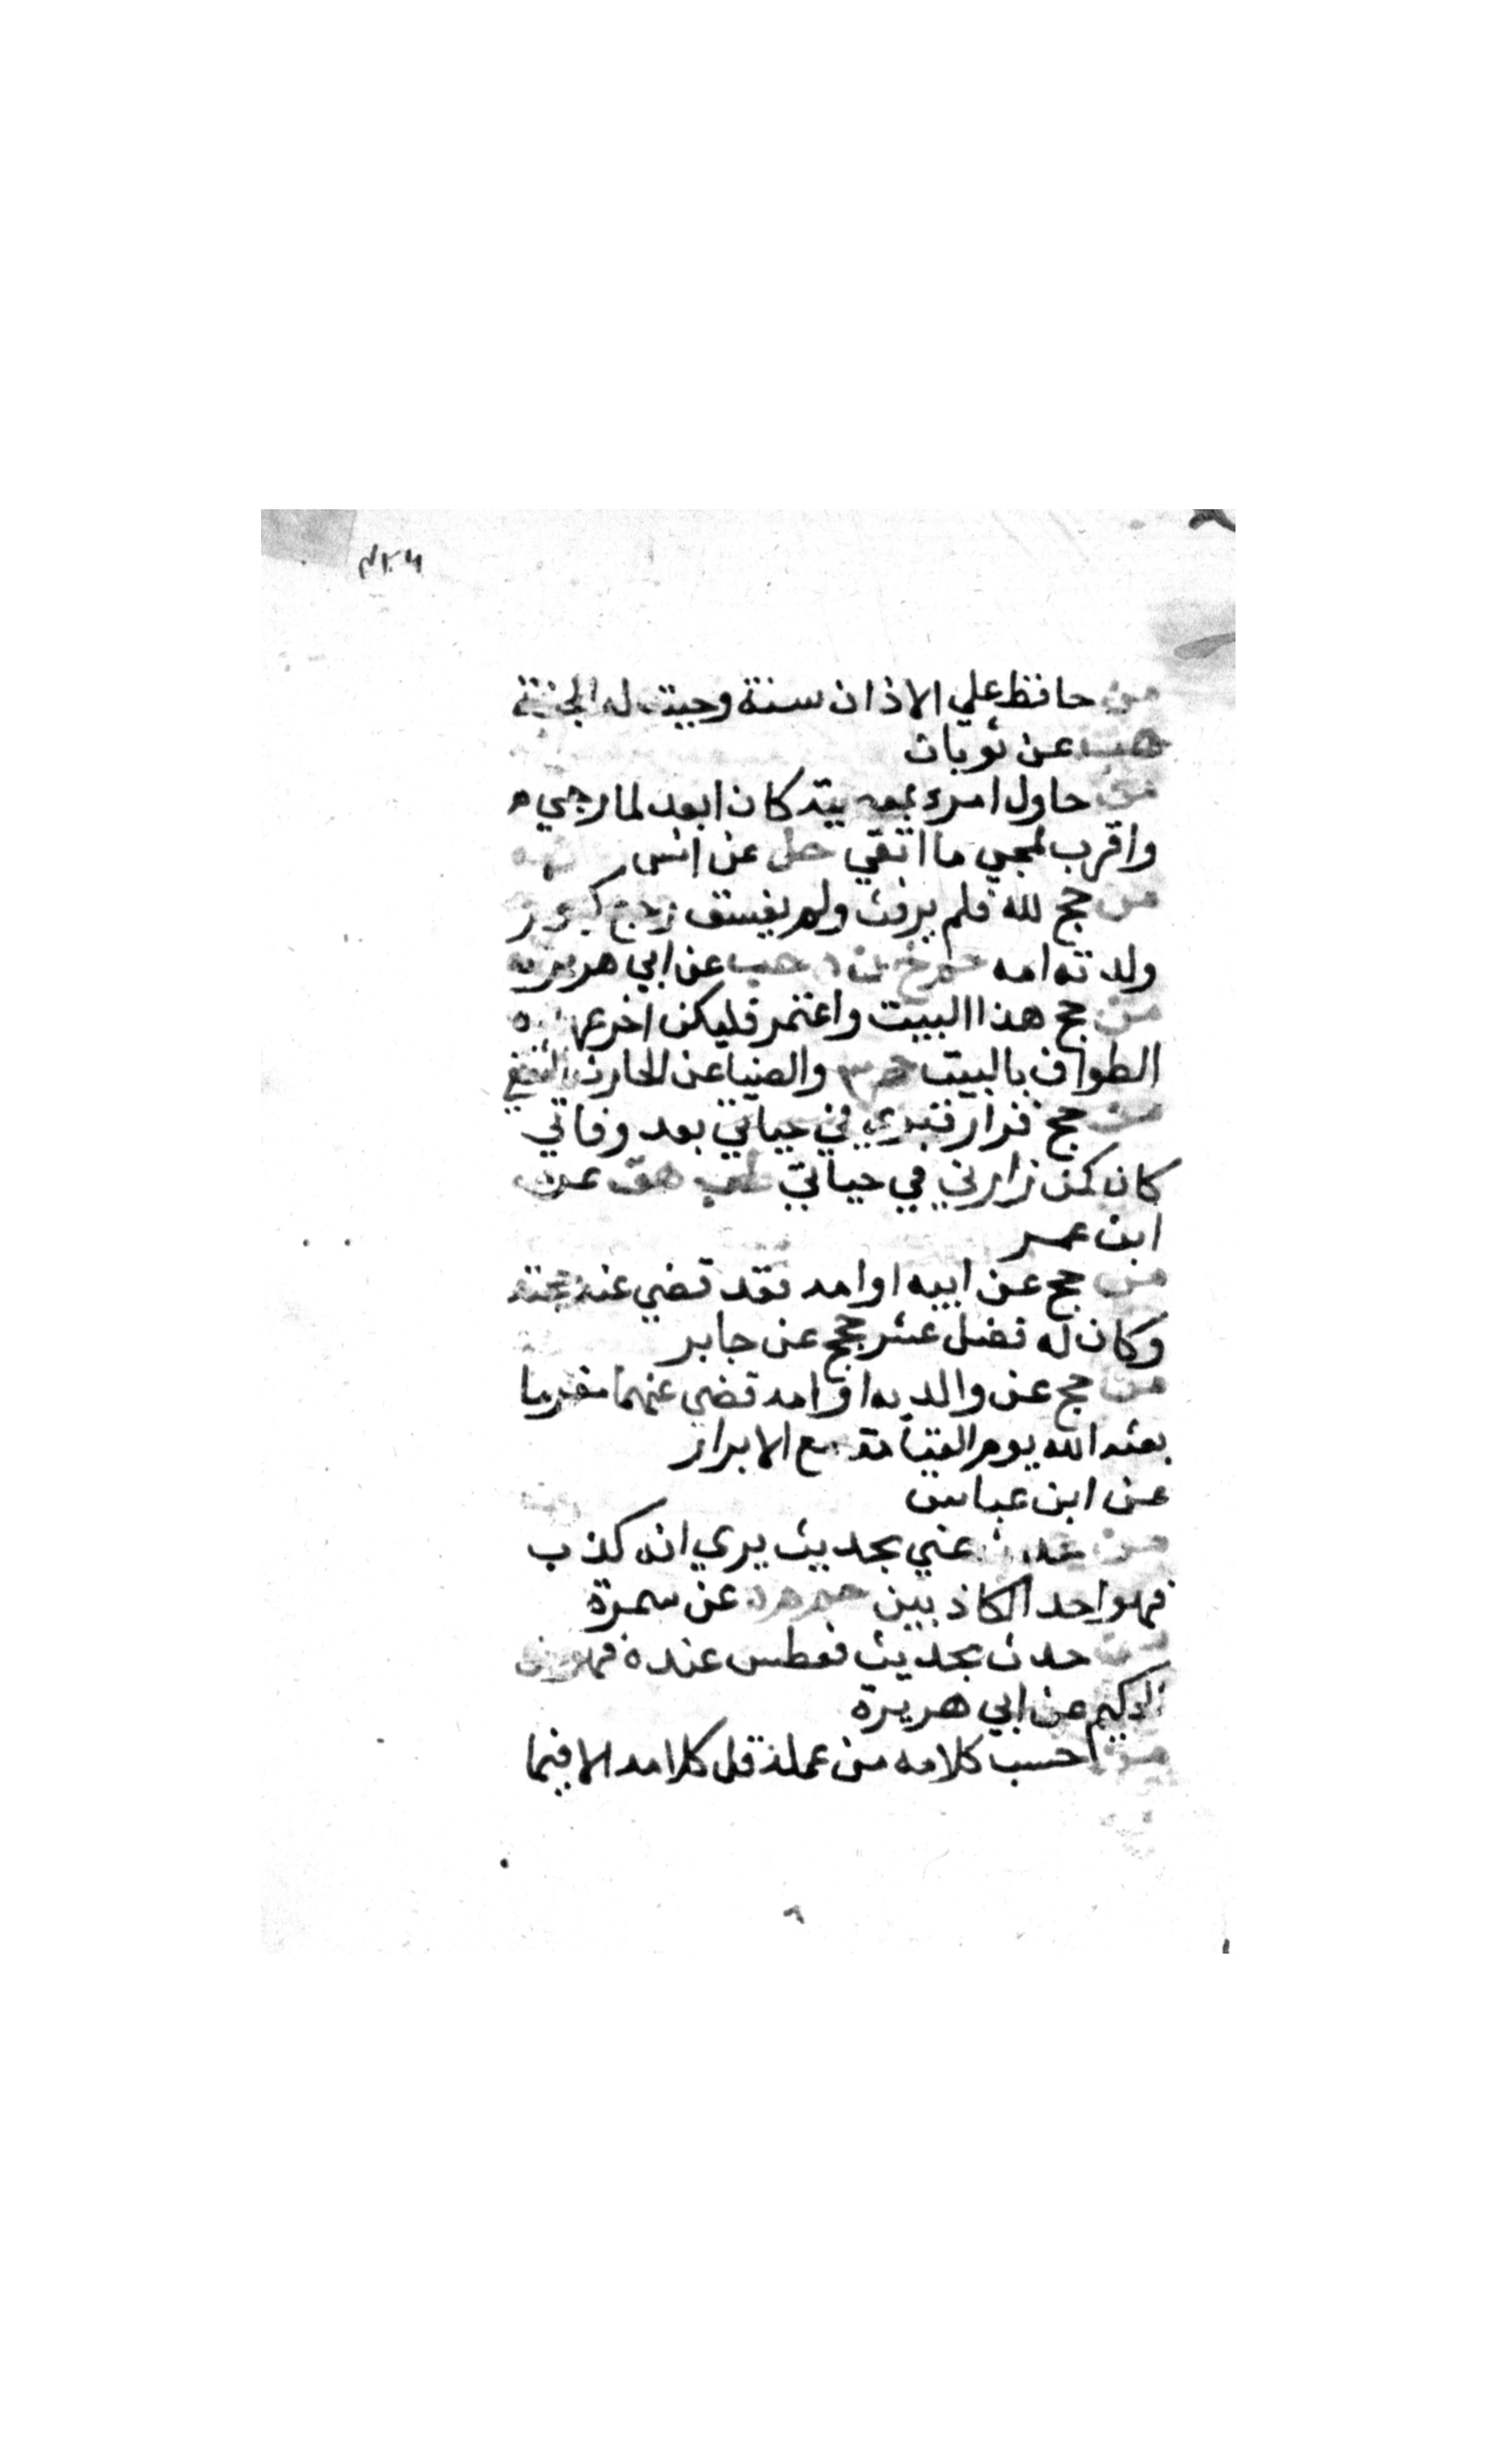 من حافظ علي الاذان سنة وجبت له الجنة
هب عن ثوبان
من حاول امرء بمعصيته كان ابعد لما رجي
واقرب لمجي ما اتقي حل عن انس
من حج لله فلم يرفث ولم يفسق رجع كيوم
ولدته امه حم خ ن ه حب عن ابي هريرة
من حج هذا البيت واعتمر فليكن اخر عهده
الطواف بالبيت حم ٣ والضيا عن الحارث الثقفي
من حج فزار قبري في حياتي بعد وفاتي
كان كمن زارني في حياتي طب هق عن
ابن عمر
من حج عن ابيه او امه فقد قضي عنه حجته
وكان له فضل عشر حجج عن جابر
من حج عن والديه او امه قضي عنهما مغرما
بعثه الله يوم القيامة مع الابرار
عن ابن عباس
من حدث عني بحديث يري انه كذب
فهو احد الكاذبين حم م ه عن سمرة
من حدث بحديث فعطس عنده فهو حق
الحكيم عن ابي هريرة
من حسب كلامه من عمله قل كلامه الا فيما